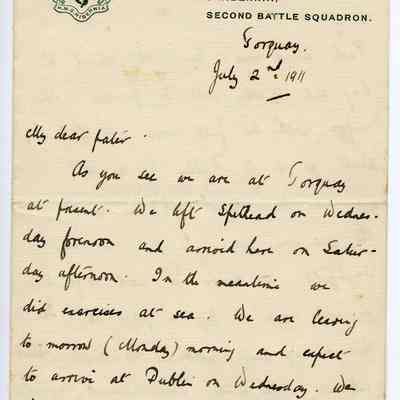 H.M.S. HIBERNIA
SECOND BATTLE SQUADRON.
Torquay.
July 2nd 1911
My dear Pater.
As you see we are at Torquay
at present. We left Spithead on Wednes-
day forenoon and arrived here on Satur-
day afternoon. In the meantime we
did exercises at sea. We are leaving
to morrow (Monday) morning and expect
to arrive at Dublin on Wednesday. We